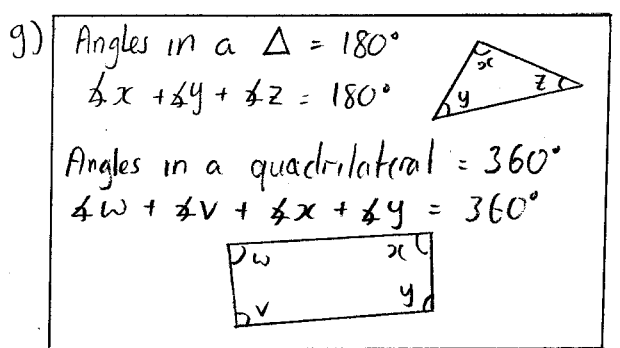 g) Angles in a Δ = 180°
∡x + ∡y + ∡z = 180°
x
y
z
Angles in a quadrilateral = 360°
∡w + ∡v + ∡x + ∡y = 360°
w
x
v
y